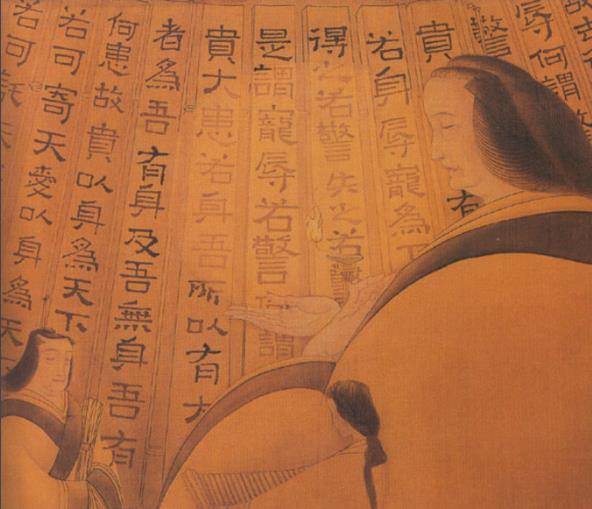 辱何謂
警
貴
若身辱寵為下
得之若警失之若警
是謂寵辱若警何謂
貴大患若身吾所以有大
者為吾有身及吾無身吾有
何患故貴以身為天下
若可寄天愛以身為天
若可託天